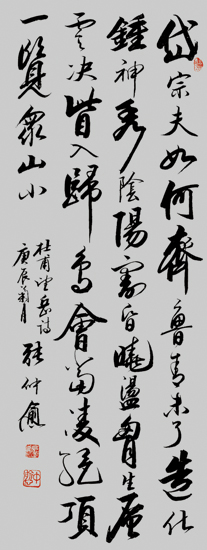 岱宗夫如何齊魯青未了造化
鍾神秀陰陽割昏曉盪胸生層
雲决眥入歸鳥會當凌絕頂
一覽眾山小
杜甫望岳詩
庚辰年月
張仲愈